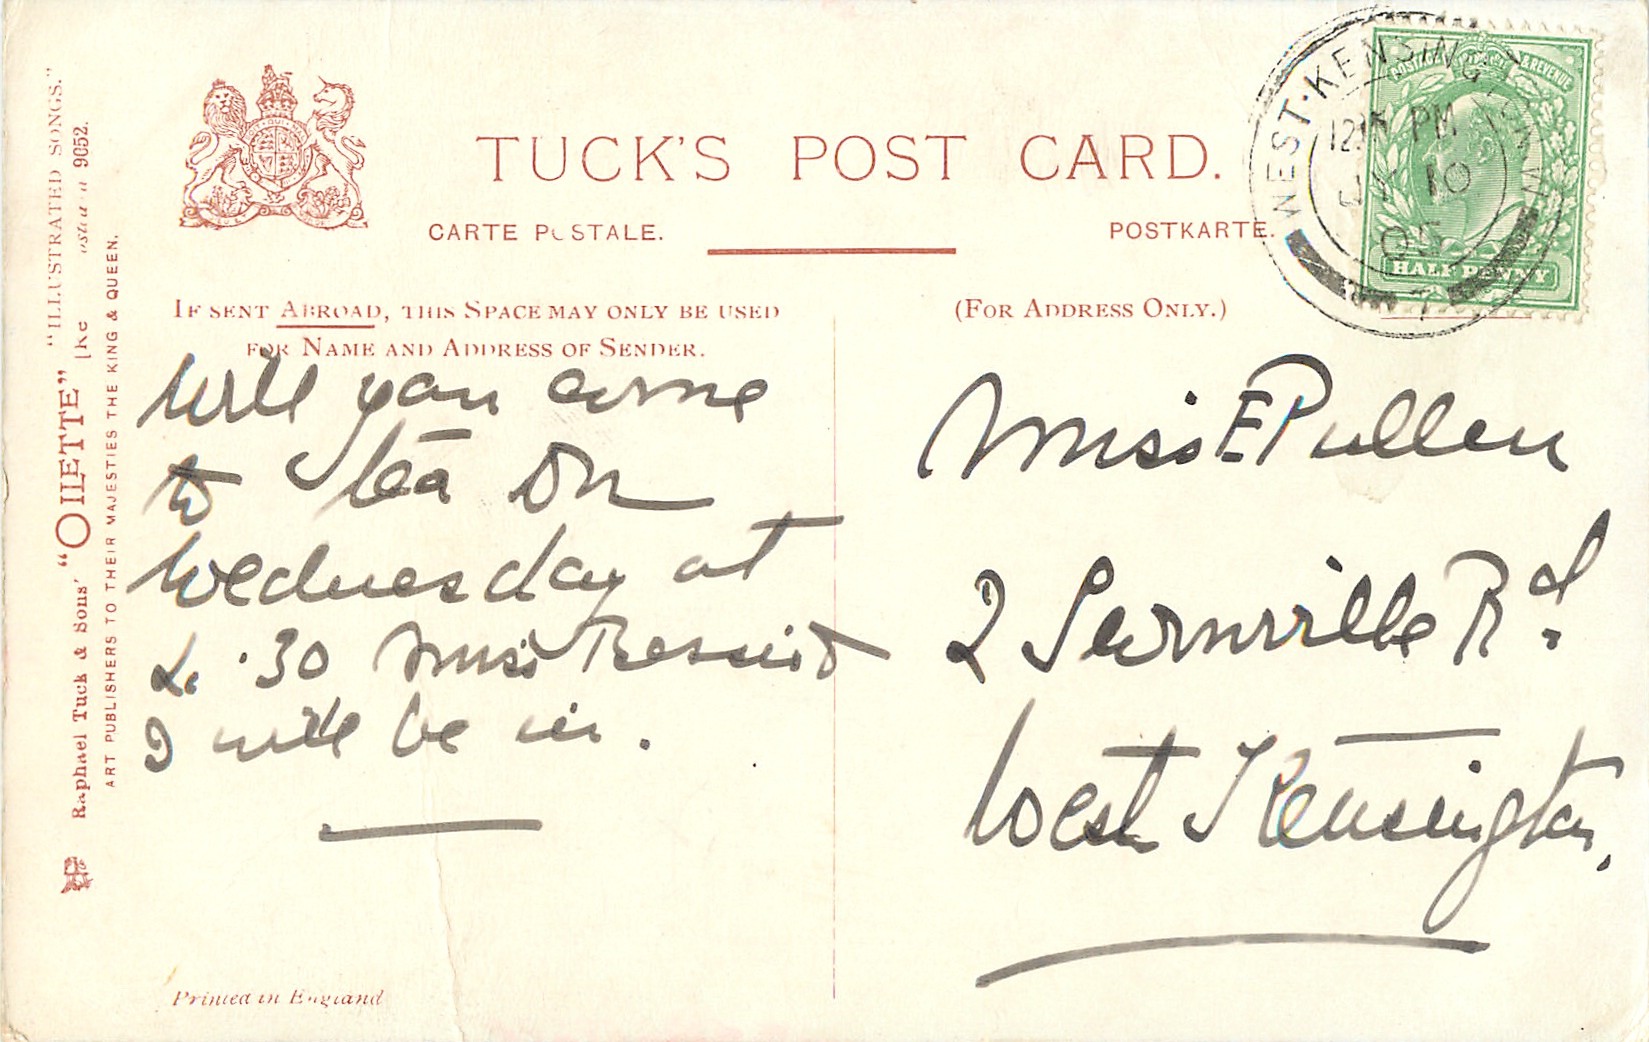 TUCK'S POST CARD.
CARTE POSTALE.
POSTKARTE.
IF SENT ABROAD, THIS SPACE MAY ONLY BE USED
FOR NAME AND ADDRESS OF SENDER.
(FOR ADDRESS ONLY.)
"ILLUSTRATED SONGS."
Raphael Tuck & Sons' "OILETTE" 9052.
ART PUBLISHERS TO THEIR MAJESTIES THE KING & QUEEN.
WEST KENSINGTON W
12 PM
10
05
POSTAGE & REVENUE
HALF PENNY
Will you come
to tea on
Wednesday at
4.30 Miss
I will be in.
Miss E Pullen
2 Rd.
West Kensington.
Printed in England